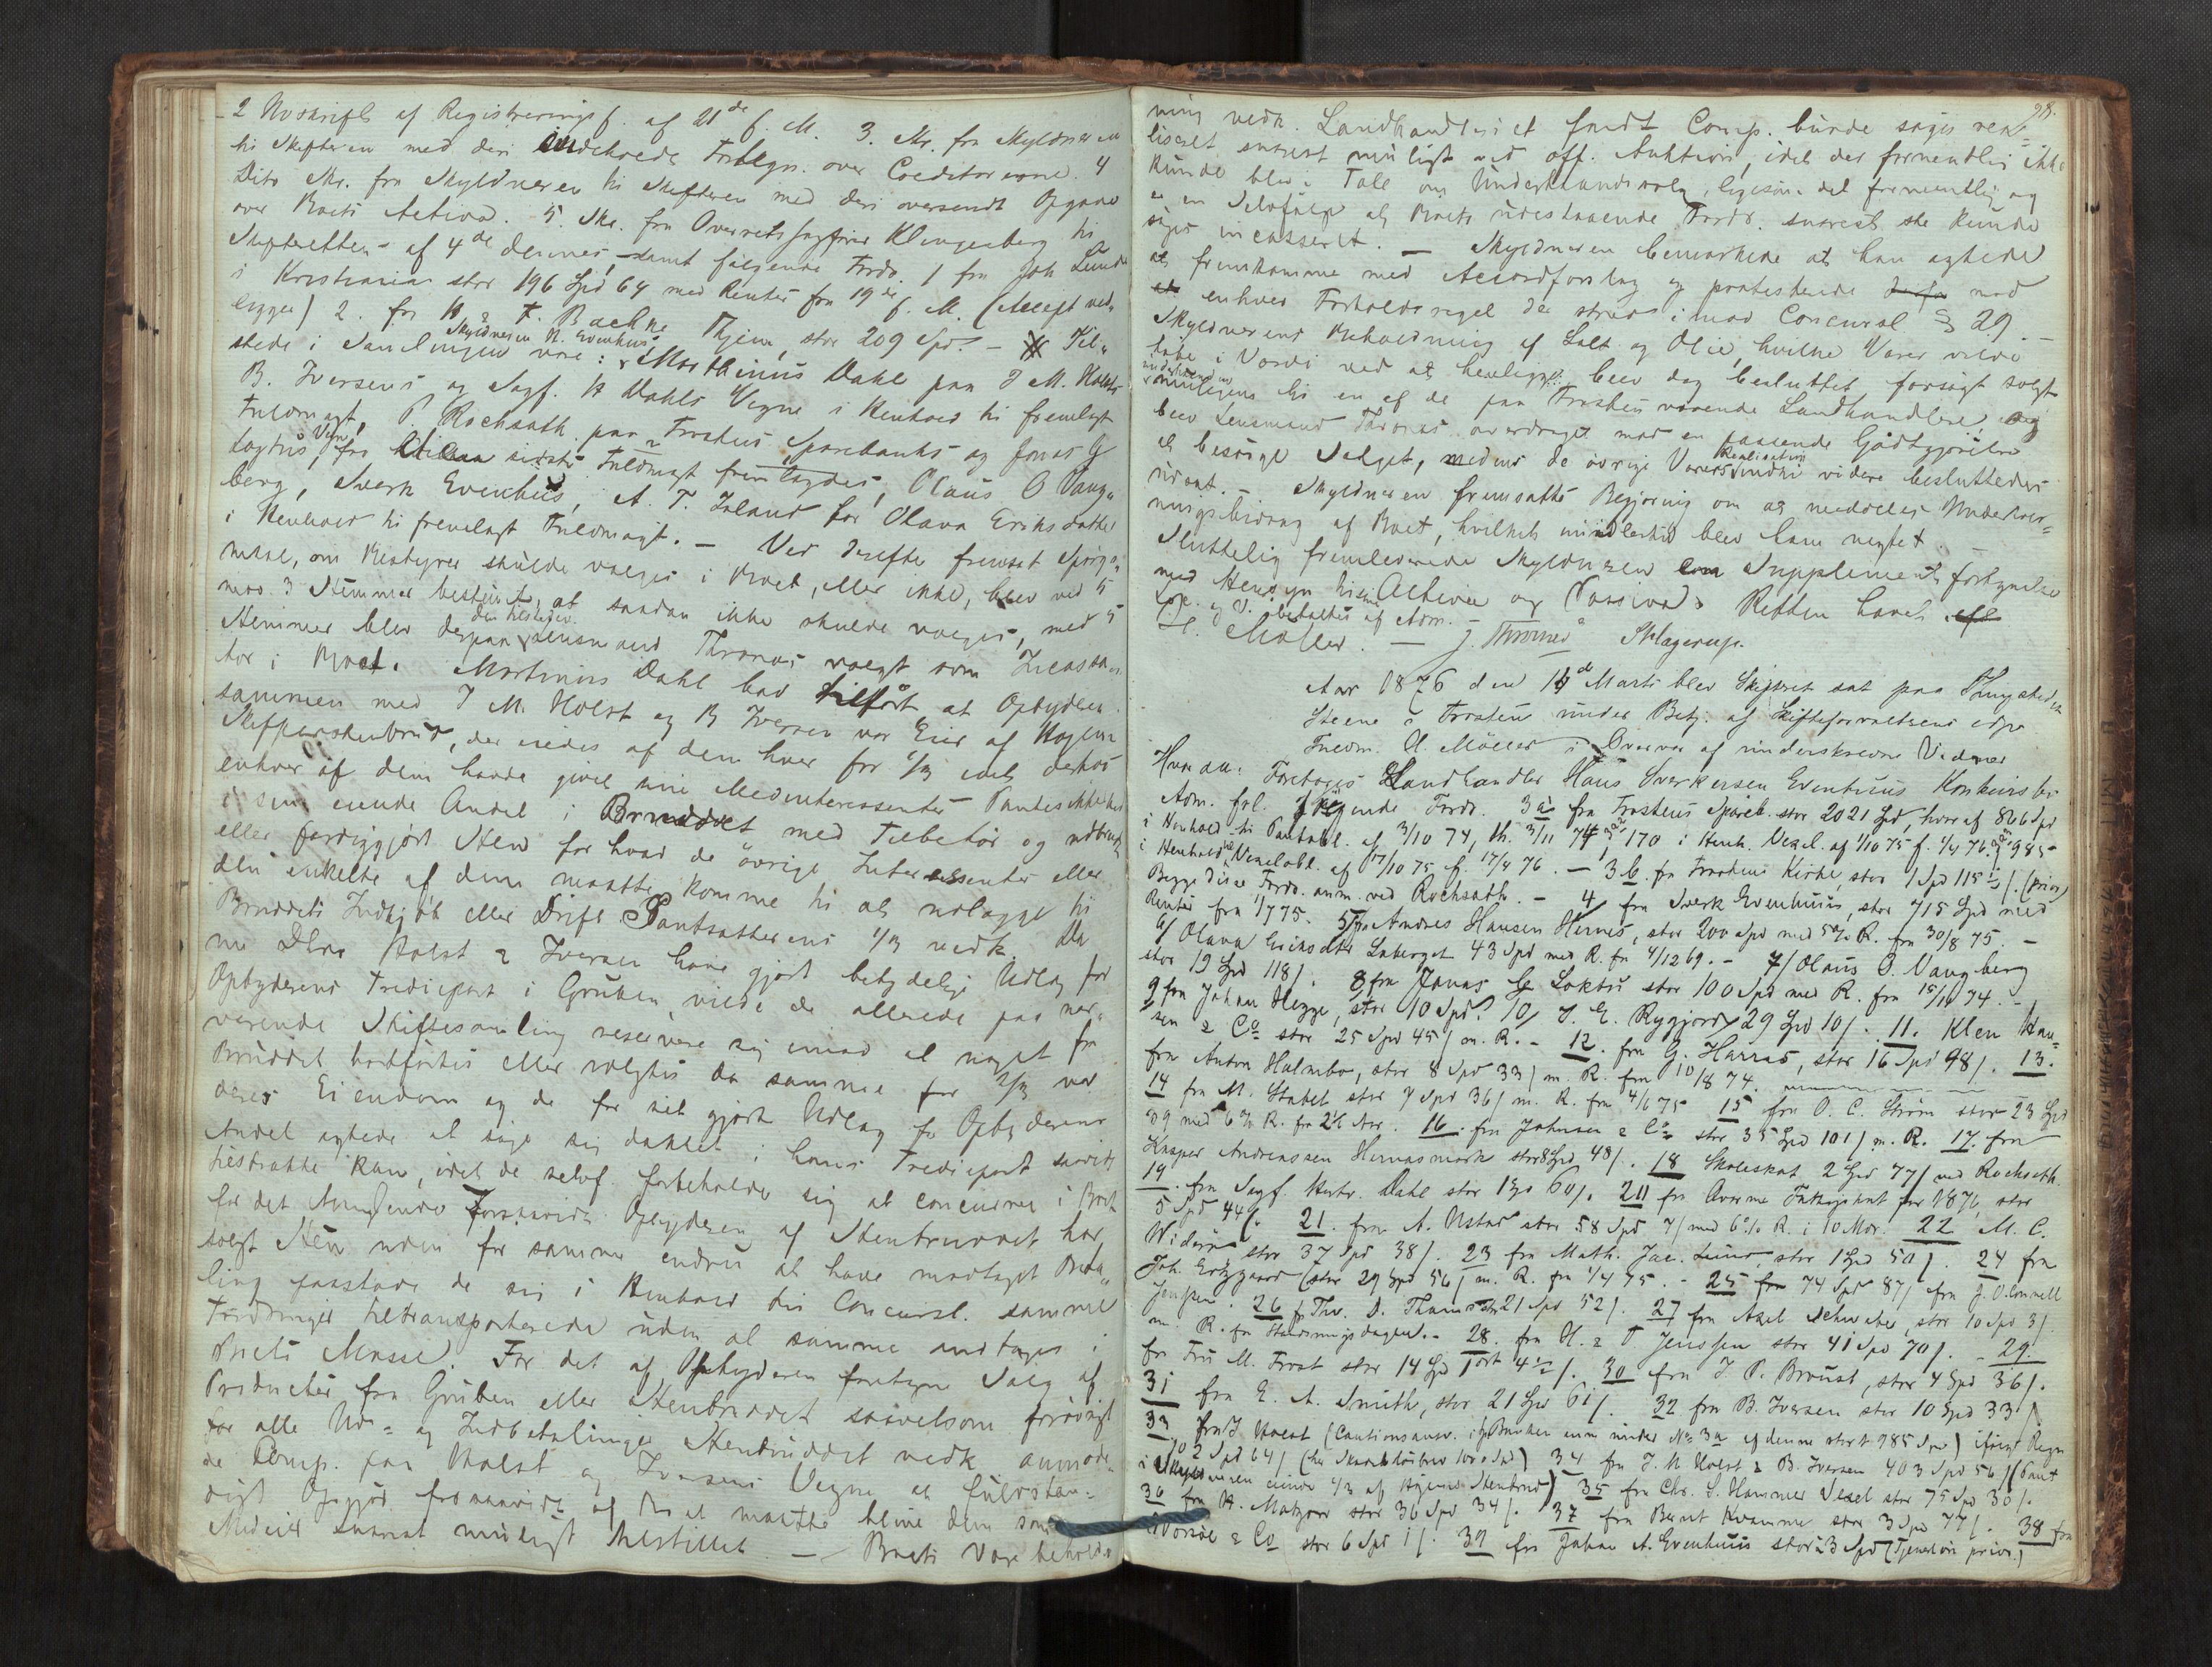 2 Udskrift af Registreringsf. af 21de f. M. 3. Skr. fra Skyldneren
til Skifteren med deri indeholdt Fortegn. over Creditorerne. 4
Dito Skr. fra Skyldneren til Skifteren med deri oversendt Opgave
over Boets Activa. 5. Skr. fra Overretssagfører Klingenberg til
Skifteretten af 4de dennes, samt følgende Fordr. 1 fra Joh Lunde
i Kristiania stor 196 Spd 64 med Renter fra 19de f. M. (Accept ved-
lygger) 2. fra F. Bachke Thjem, stor 209 Spd. – Til-
stede i Samlingen var: Skyldneren H. Evenhus, Marthinus Dahl paa J M. Holst
B. Iversens og Sagf. Dahls Vegne i Henhold til fremlagt
Fuldmagt, P. Rochsath paa Frostens Sparebanks og Jonas G
Loktus Vegne, fra sidste Fuldmagt fremlagdes, Olaus O Vang-
berg, Sverk Evenhus, A. T. Inland for Olava Eriksdatter
i Henhold til fremlagt Fuldmagt. – Ved derefter fremsat Spørgs-
maal, om Bestyrer skulde vælges i Boet, eller ikke, blev ved 5
mod 3 Stemmer bestemt, at saadan ikke skulde vælges, med 5
Stemmer blev derpaa den tilstedev. Lensmand Thrønæs valgt som Incassa-
tor i Boet. Martinus Dahl bad tilført at Opbyderen
sammen med J M. Holst og B Iversen var Eier af Hogens
Slipestensbrud, der eiedes af dem hver for 1/3 idet derhos
enhver af dem havde givet sine Medinteressenter Pantesikkerhed
i sin eiende Andel i Bruddet med Tilbehør og udbrudt
eller færdiggjort Sten for hvad de øvrige Interessenter eller
den enkelte af dem maatte komme til at udlægge til
Bruddets Indkjøb eller Drift Pantsætterens 1/3 vedk. Da
nu DHrr Holst & Iversen have gjort betydelige Udlæg for
Opbyderens Trediepart i Gruben vilde de allerede paa nær-
værende Skiftesamling reservere sig imod at noget fra
Bruddet bortførtes eller solgtes da samme for 2/3 var
deres Eiendom og de for sit gjorte Udlæg for Opbyderens
Andel agtede at søge sig dækket i hans Trediepart saavidt
tilstrække kan, idet de selvf. forbeholder sig at concurrere i Boet
for det Manglende Forsaavidt Opbyderen af Stenbruddet har
solgt Sten uden for samme endnu at have modtaget Beta-
ling paastode de sig i Henhold til Concursl. samme
Fordringer tiltransporterede uden at samme indtages i
Boets Masse. For det af Opbyderen foretagne Salg af
Producter fra Gruben eller Stenbruddet saavelsom forøvrigt
for alle Ud- og Indbetalinger Stenbruddet vedk anmode-
de Comp. paa Holst og Iversens Vegne at fuldstæn-
digt Opgjør forsaavidt af Boet maatte blive dem som
Medeier snarest muligt tilstillet – Boets Varebehold-

98.
ning vedk. Landhandleriet fandt Comp. burde søges rea-
liseret snarest muligt ved off. Auktion, idet der formentlig ikke
kunde blive Tale om Underhaandssalg, ligesom det formentlig og
er en Selvfølge at Boets udestaaende Fordr. snarest ske kunde
søges incasseret. – Skyldneren bemærkede at han agtede
at fremkomme med Accordforslag og protesterede mod
enhver Forholdsregel der strede imod Concursl. § 29. –
Skyldnerens Beholdning af Salt og Olie, hvilke Varer vilde
tabe i Værdi ved at henligge, blev dog besluttet forsøgt solgt
underhaanden muligens til en af de paa Frosten værende Landhandlere, og
blev Lensmand Thrønæs overdraget mod en passende Godtgjørelse
at besørge Salget, medens de øvrige Varers Realisation indtil videre besluttedes
udsat. – Skyldneren fremsatte Begjæring om at meddeles Underhold-
ningsbidrag af Boet, hvilket imidlertid blev ham negtet. –
Sluttelig fremleverede Skyldneren Supplements fortegnelse
med Hensyn til sine Activa og Passiva. Retten hævet.
Loc. og V. betaltes af Adm.
H. Møller. – J. Thrønæs Schlagerup.

Aar 1876 den 14de Marts blev Skifteret sat paa Thingstedet
Steene i Frosten under Betj. af Skifteforvalterens edsv
Fuldm. H. Møller i Overvær af underskrevne Vidner
Hvorda: Foretoges Landhandler Hans Sverkersen Evenhuus Konkursbo
Adm. frl. følgende Fordr. 3a fra Frostens Spareb. stor 2021 Spd, hvoraf 866 Spd
i Henhold til Pantobl. af 3/10 74, th. 3/11 74, 170 i Henh. Vexel. af 1/10 75 f. 1/4 76. og 985
i Henhold til Vexelobl. af 17/10 75 f. 17/4 76. – 3b. fra Frostens Kirke, stor 1 Spd 115 1/2 /. (prior)
Begge disse Fordr. anm. ved Rochsath. – 4 fra Sverk Evenhuus, stor 715 Spd med
Renter fra 1/7 75. 5 fra Andreas Hansen Hernes, stor 200 Spd med 5% R. fra 30/8 75. –
6/ Olava Eriksdtr Laberget 43 Spd med R. fra 4/12 69. – 7/ Olaus O. Vangberg
stor 19 Spd 118/. 8 fra Jonas G Loktu stor 100 Spd med R. fra 15/10 74. –
9 fra Johan Hegge, stor 10 Spd. 10/ J. E. Rygjord 29 Spd 10/. 11. Klen Han-
sen & Co stor 25 Spd 45/ m. R. – 12. fra G. Harras, stor 16 Spd 98/. 13.
fra Anton Holmbo, stor 8 Spd 33/ m. R. fra 10/8 74.
14 fra M. Stabel stor 7 Spd 36/ m. R. fra 4/6 75 15 fra O. C. Strøm stor 23 Spd
59 med 6% R. fra 2½ Aar. 16. fra Johnsen & Co stor 35 Spd 101/ m. R. 17. fra
Kasper Andreassen Hernasmark stor 8 Spd, 48/. 18 Skoleskat 2 Spd 77/ ved Rochsath.
19. fra Sagf. Dahl stor 1 Spd 60/. 20 fra Aavarme Fattigskat for 1876, stor
5 Spd 44/. 21. fra A. Ustad stor 58 Spd 7/ med 6% R. i 10 Mdr. 22 M. C.
Widerø stor 37 Spd 38/. 23 fra Math. Jac. Lund, stor 1 Spd 50/. 24 fra
Joh. Ertzgaard (stor 29 Spd 56/ m. R. fra 1/4 75. – 25 74 Spd 87/ fra J. O. Connell
Jenssen. 26 fra Thv. D. Thams stor 21 Spd 52/. 27 fra Axel Schwabe, stor 10 Spd 3/
m. R. fra Stævningsdagen. – 28. fra H. & P Jenssen stor 41 Spd 70/. – 29.
fra Fru M. Frost stor 14 Spd 1 ort 4 1/2 /. 30 fra J. P. Broust, stor 4 Spd 36/.
31 fra E. A. Smith, stor 21 Spd 61/. 32 fra B. Iversen stor 10 Spd 33/.
33. fra J. Holst (Cautionsansv. til Banken anm under No 3a af denne stort 985 Spd) ifølge Regn
102 Spd 64/ (her Skadesløsbrev 1000 Spd) 34 fra J. M Holst & B. Iversen 403 Spd 56/ (Pant
i Skyldneren eiende 1/3 af Hojems Stenbrud) 35 fra Chr. S. Hammer Vexel stor 75 Spd 30/.
36 fra H. Matzow stor 36 Spd 34/. 37 fra Bernt Kvamme stor 3 Spd 77/. 38 fra
Worsøe & Co stor 6 Spd 1/. 39 fra Johan A. Evenhuus stor 23 Spd (Tjenerløn prior.)